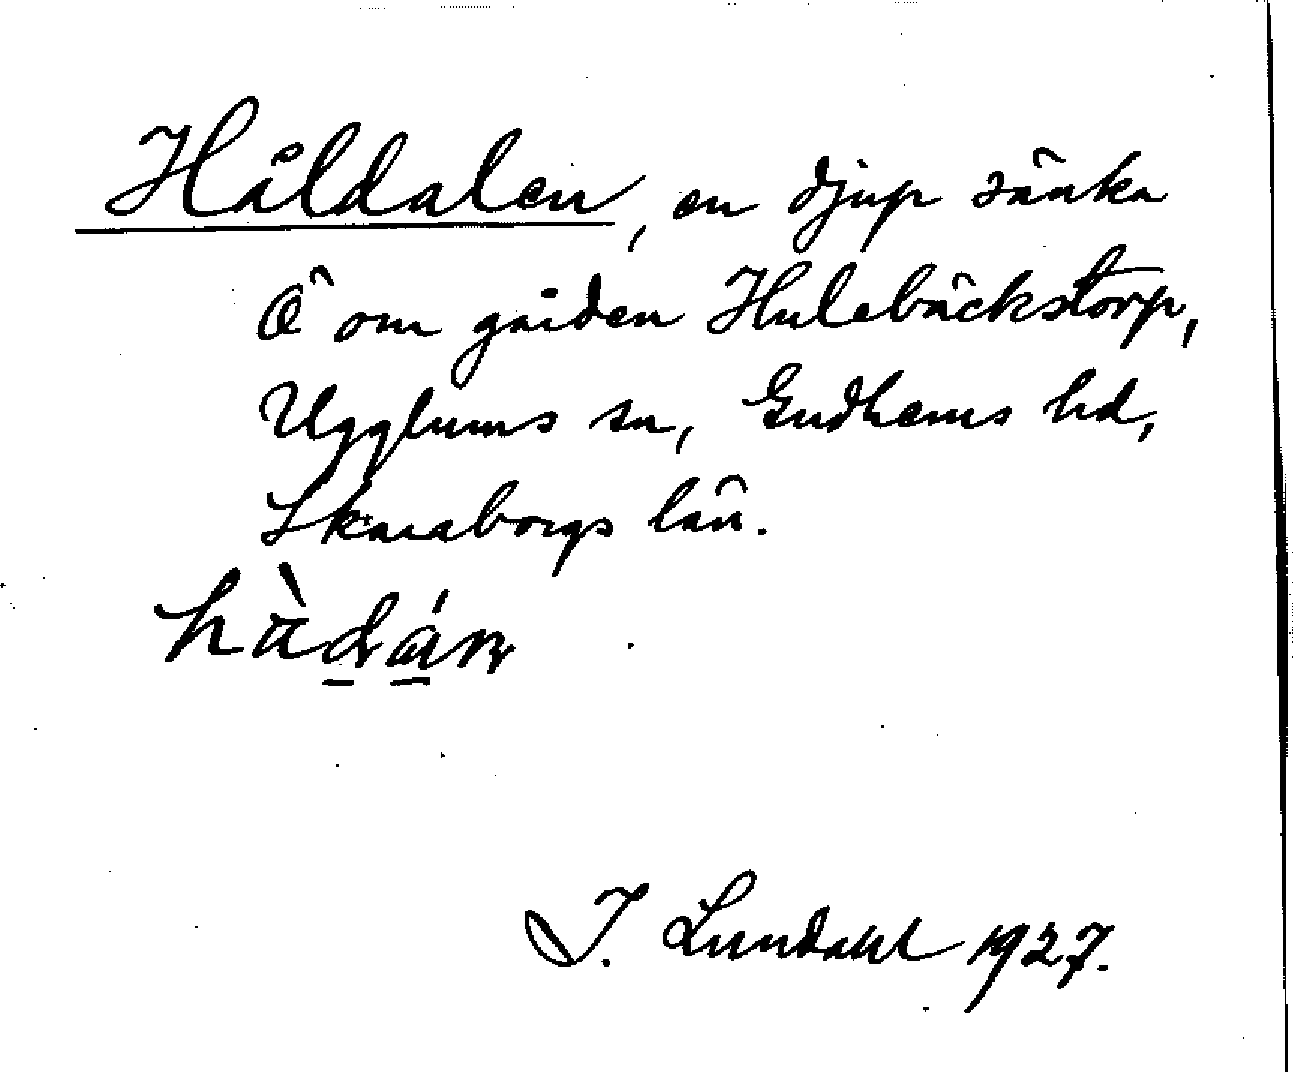 Håldalen, en djup sänka
Ö om gården Hulebäckstorp,
Ugglums sn, Gudhems hd,
Skaraborgs län.
I. Lundahl 1927.